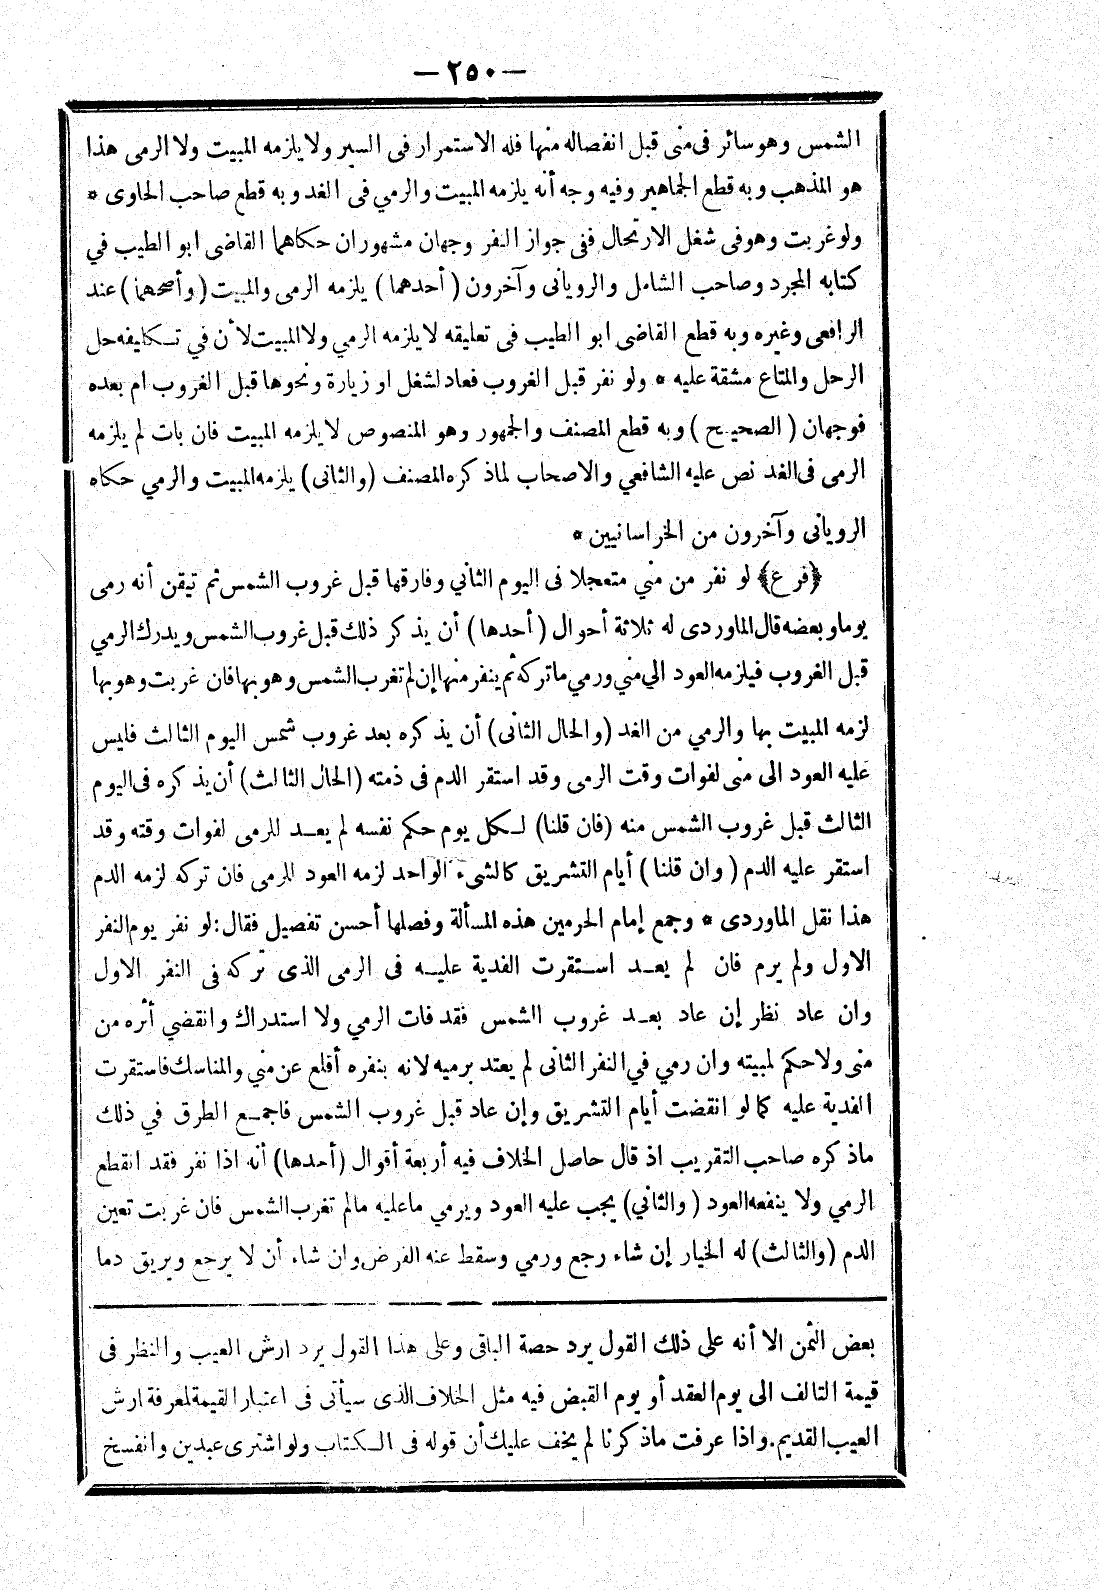 — ٢٥٠ —
الشمس وهو سائر فى منى قبل انفصاله منها فله الاستمرار فى السير ولا يلزمه المبيت ولا الرمى هذا
هو المذهب وبه قطع الجماهير وفيه وجه أنه يلزمه المبيت والرمي فى الغد وبه قطع صاحب الحاوى *
ولو غربت وهو فى شغل الارتحال ففى جواز النفر وجهان مشهوران حكاهما القاضى ابو الطيب في
كتابه المجرد وصاحب الشامل والرويانى وآخرون ( أحدهما ) يلزمه الرمى والمبيت ( وأصحهما ) عند
الرافعى وغيره وبه قطع القاضى ابو الطيب فى تعليقه لا يلزمه الرمي ولا المبيت لأن في تكليفه حل
الرحل والمتاع مشقة عليه * ولو نفر قبل الغروب فعاد لشغل او زيارة ونحوها قبل الغروب ام بعده
فوجهان ( الصحيح ) وبه قطع المصنف والجمهور وهو المنصوص لا يلزمه المبيت فان بات لم يلزمه
الرمى فى الغد نص عليه الشافعي والاصحاب لماذكره المصنف (والثانى) يلزمه المبيت والرمي حكاه
الرويانى وآخرون من الخراسانيين *
﴿فرع﴾ لو نفر من مني متعجلا فى اليوم الثاني وفارقها قبل غروب الشمس ثم تيقن أنه رمى
يوما وبعضه قال الماوردى له ثلاثة أحوال ( أحدها ) أن يذكر ذلك قبل غروب الشمس ويدرك الرمي
قبل الغروب فيلزمه العود الي مني ورمي ماتركه ثم ينفر منها إن لم تغرب الشمس وهو بها فان غربت وهو بها
لزمه المبيت بها والرمي من الغد (والحال الثانى) أن يذكره بعد غروب شمس اليوم الثالث فليس
عليه العود الى منى لفوات وقت الرمى وقد استقر الدم فى ذمته (الحال الثالث) أن يذكره فى اليوم
الثالث قبل غروب الشمس منه (فان قلنا) لكل يوم حكم نفسه لم يعد للرمى لفوات وقته وقد
استقر عليه الدم ( وان قلنا ) أيام التشريق كالشىء الواحد لزمه العود للرمى فان تركه لزمه الدم
هذا نقل الماوردى * وجمع إمام الحرمين هذه المسألة وفصلها أحسن تفصيل فقال : لو نفر يوم النفر
الاول ولم يرم فان لم يعد استقرت الفدية عليه فى الرمى الذى تركه فى النفر الاول
وان عاد نظر إن عاد بعد غروب الشمس فقد فات الرمي ولا استدراك وانقضي أثره من
منى ولا حكم لمبيته وان رمي في النفر الثانى لم يعتد برميه لانه بنفره أقلع عن مني والمناسك فاستقرت
الفدية عليه كما لو انقضت أيام التشريق وإن عاد قبل غروب الشمس فاجمع الطرق في ذلك
ماذكره صاحب التقريب اذ قال حاصل الخلاف فيه أربعة أقوال (أحدها) أنه اذا نفر فقد انقطع
الرمي ولا ينفعه العود ( والثاني) يجب عليه العود ويرمي ماعليه مالم تغرب الشمس فان غربت تعين
الدم (والثالث) له الخيار إن شاء رجع ورمي وسقط عنه الفرض وان شاء أن لا يرجع ويريق دما
بعض الثمن الا أنه على ذلك القول يرد حصة الباقى وعلى هذا القول يرد ارش العيب والنظر فى
قيمة التالف الى يوم العقد أو يوم القبض فيه مثل الخلاف الذى سيأتى فى اعتبار القيمة لمعرفة ارش
العيب القديم . واذا عرفت ماذكرنا لم يخف عليك أن قوله فى الكتاب ولو اشترى عبدين وانفسخ